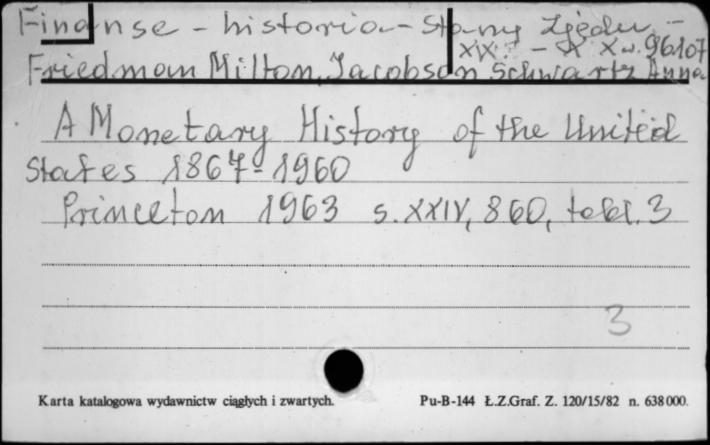 Finanse - historia - Stany Zjedn. -
XX w. 96107
Friedman Milton, Jacobson Schwartz Anna
A Monetary History of the United
States 1867-1960
Princeton 1963 s. XXIV, 860, tabl. 3
3
Karta katalogowa wydawnictw ciągłych i zwartych.
Pu-B-144 Ł.Z.Graf. Z. 120/15/82 n. 638000.